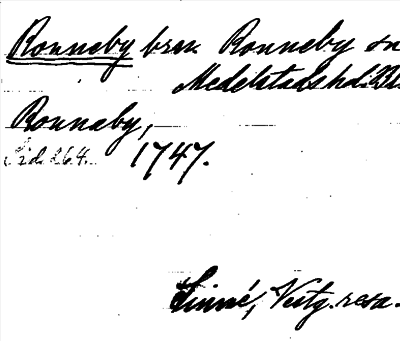 Ronneby brun Ronneby sn
Medelstads hd. Bl.
Ronneby,
Sid. 264. 1747.
Linné, Vestg. resa.